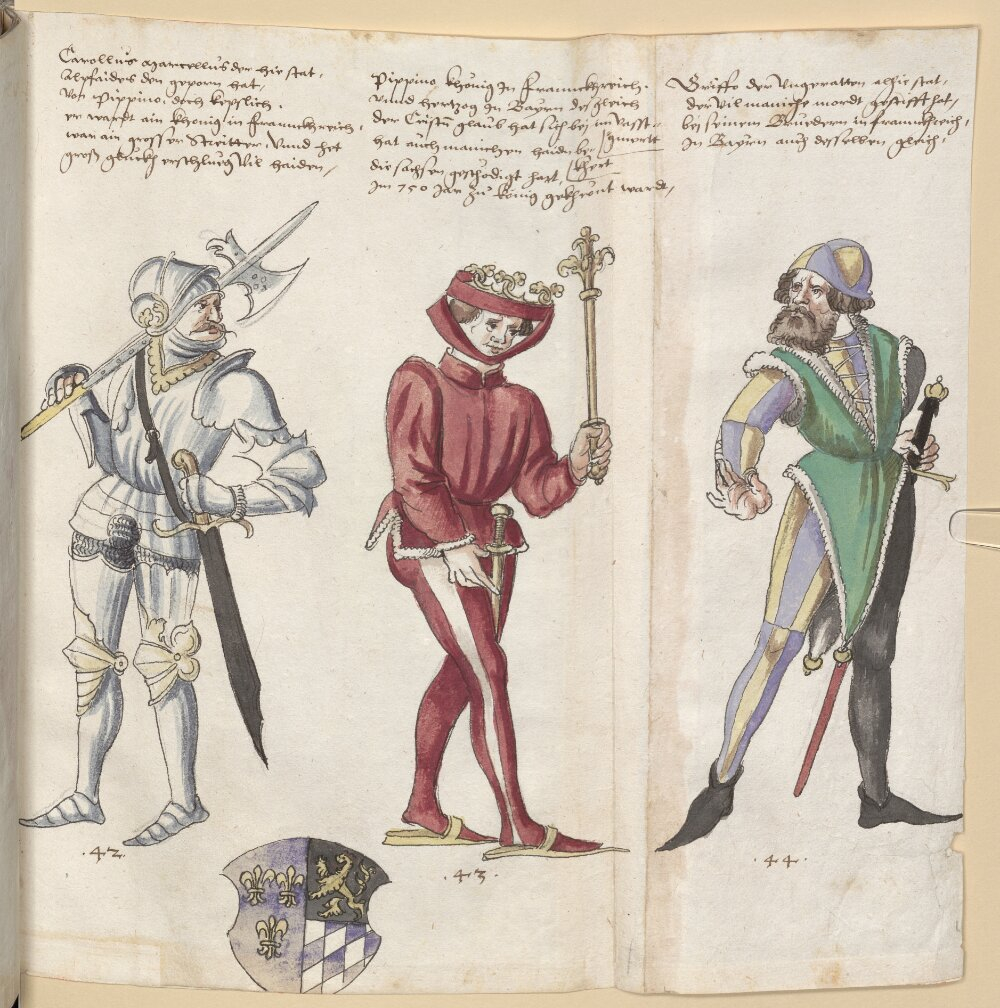 Carollus Marcellus der hie stat,
Alpfaides den geporn hat,
Von Pippino, doch kepslich.
er warff ain khönig in Franckhreich,
war ain grosser Streitter Vnnd het
gross glückh erschlueg Vil haiden,
Pippino khönig In Franckhreich.
vnnd hertzog In Bayrn des gleich
der Cristn glaub hat sich bej im vasst
hat auch manichen haiden be- gmertt
die sachsen geschedigt hart, khert
Im 750 Jar zu konig gekhront wardt,
Griffo der Vngeratten alhie stat,
der vil maniche mordt gestifft hat,
bej seinem Bruedern in franckhreich,
In Bayrn auch desselben gleich,
.42.
.43.
.44.